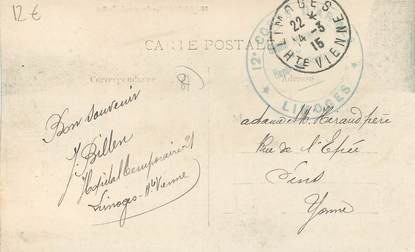 12€
CARTE POSTALE
Correspondance
Adresse
LIMOGES
22 *
14-3
15
Hte VIENNE
12e
LIMOGES
Bon souvenir
J. Billen
Hopital temporaire
Limoges Hte Vienne
père
Rue de l'Epée
Sens
Yonne